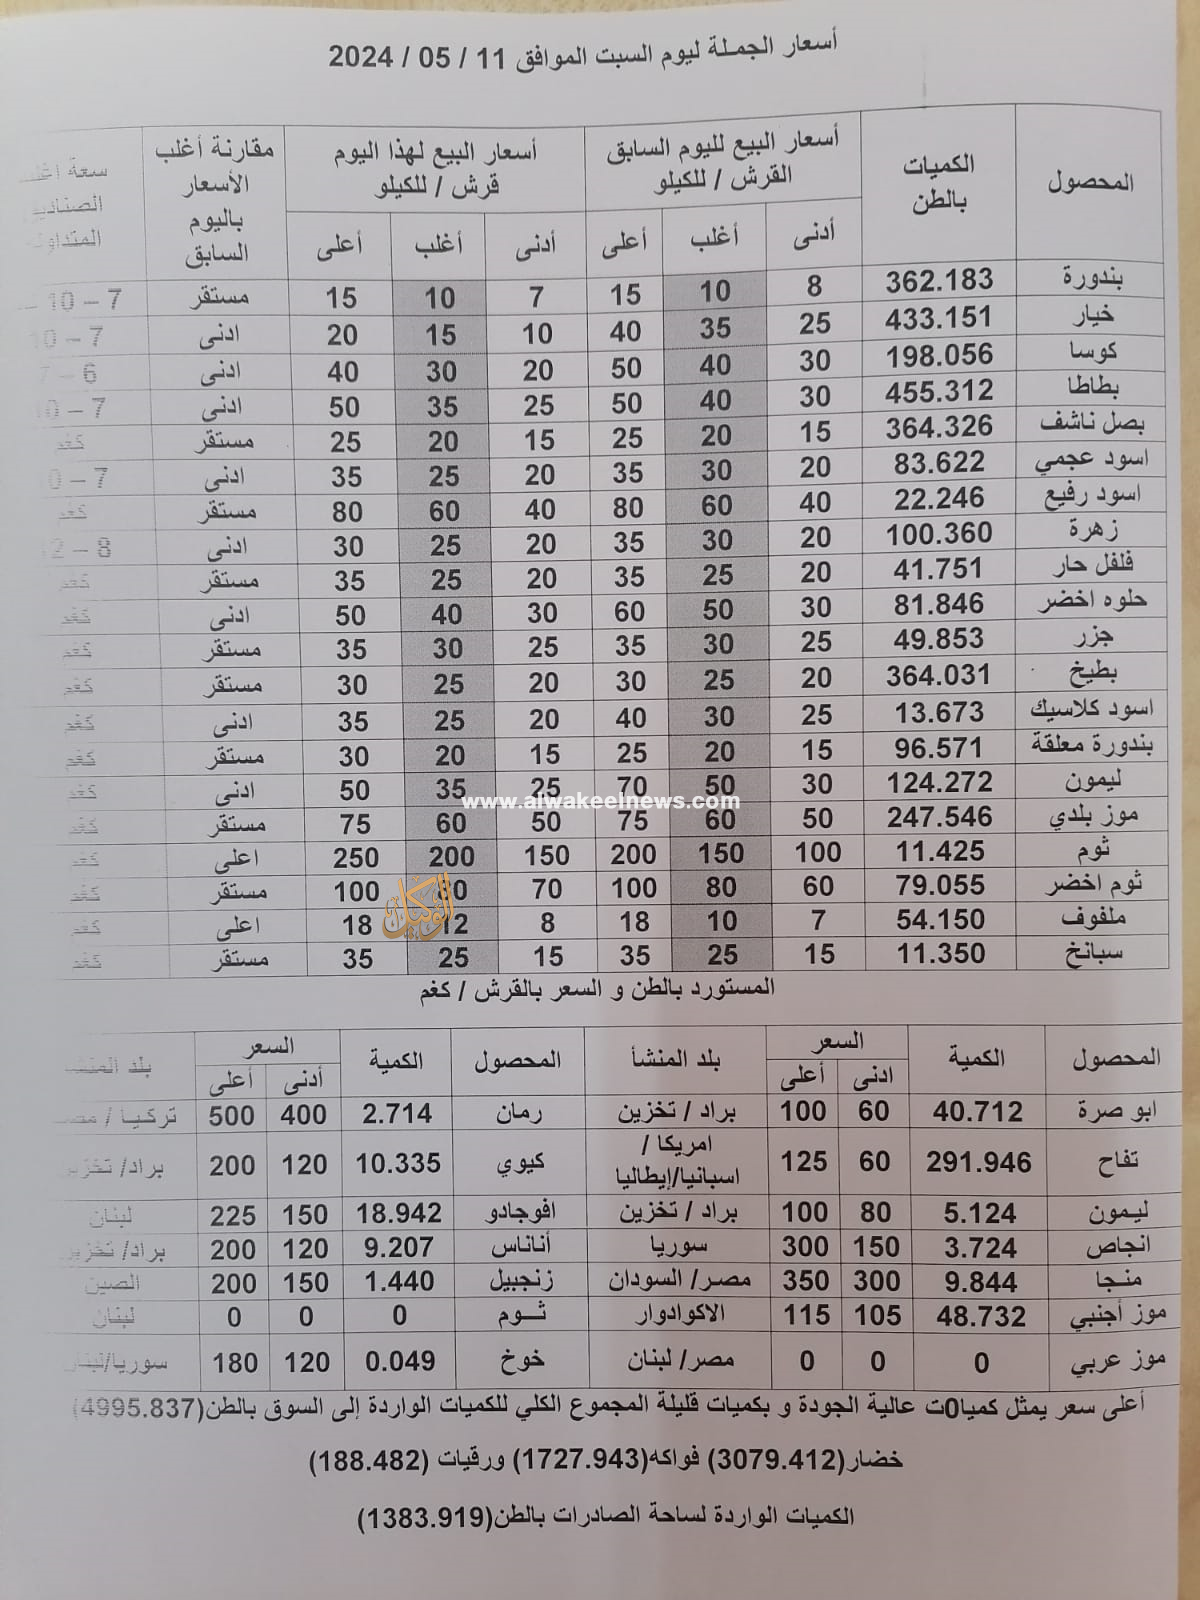 أسعار الجملة ليوم السبت الموافق 11 / 05 / 2024
المحصول الكميات بالطن أسعار البيع لليوم السابق القرش / للكيلو أسعار البيع لهذا اليوم قرش / للكيلو مقارنة أغلب الأسعار باليوم السابق سعة الصناديق
أدنى أغلب أعلى أدنى أغلب أعلى
بندورة 362.183 8 10 15 7 10 15 مستقر 7 – 10 –
خيار 433.151 25 35 40 10 15 20 ادنى 7 – 10
كوسا 198.056 30 40 50 20 30 40 ادنى 6 – 7
بطاطا 455.312 30 40 50 25 35 50 ادنى 7 – 10
بصل ناشف 364.326 15 20 25 15 20 25 مستقر كغم
اسود عجمي 83.622 20 30 35 20 25 35 ادنى 7 – 10
اسود رفيع 22.246 40 60 80 40 60 80 مستقر كغم
زهرة 100.360 20 30 35 20 25 30 ادنى 8 – 12
فلفل حار 41.751 20 25 35 20 25 35 مستقر كغم
حلوه اخضر 81.846 30 50 60 30 40 50 ادنى كغم
جزر 49.853 25 30 35 25 30 35 مستقر كغم
بطيخ 364.031 20 25 30 20 25 30 مستقر كغم
اسود كلاسيك 13.673 25 30 40 20 25 35 ادنى كغم
بندورة معلقة 96.571 15 20 25 15 20 30 مستقر كغم
ليمون 124.272 30 50 70 25 35 50 ادنى كغم
www.alwakeelnews.com
موز بلدي 247.546 50 60 75 50 60 75 مستقر كغم
ثوم 11.425 100 150 200 150 200 250 اعلى كغم
ثوم اخضر 79.055 60 80 100 70 80 100 مستقر كغم
الوكيل
ملفوف 54.150 7 10 18 8 12 18 اعلى كغم
سبانخ 11.350 15 25 35 15 25 35 مستقر كغم
المستورد بالطن و السعر بالقرش / كغم
المحصول الكمية السعر بلد المنشأ المحصول الكمية السعر بلد المنشأ
ادنى أعلى أدنى أعلى
ابو صرة 40.712 60 100 براد / تخزين رمان 2.714 400 500 تركيا /
تفاح 291.946 60 125 امريكا / اسبانيا/إيطاليا كيوي 10.335 120 200 براد/ تخزين
ليمون 5.124 80 100 براد / تخزين افوجادو 18.942 150 225 لبنان
انجاص 3.724 150 300 سوريا أناناس 9.207 120 200 براد/ تخزين
منجا 9.844 300 350 مصر/ السودان زنجبيل 1.440 150 200 الصين
موز أجنبي 48.732 105 115 الاكوادوار ثـوم 0 0 0 لبنان
موز عربي 0 0 0 مصر/ لبنان خوخ 0.049 120 180 سوريا/لبنان
أعلى سعر يمثل كميا0ت عالية الجودة و بكميات قليلة المجموع الكلي للكميات الواردة إلى السوق بالطن(4995.837)
خضار(3079.412) فواكه(1727.943) ورقيات (188.482)
الكميات الواردة لساحة الصادرات بالطن(1383.919)